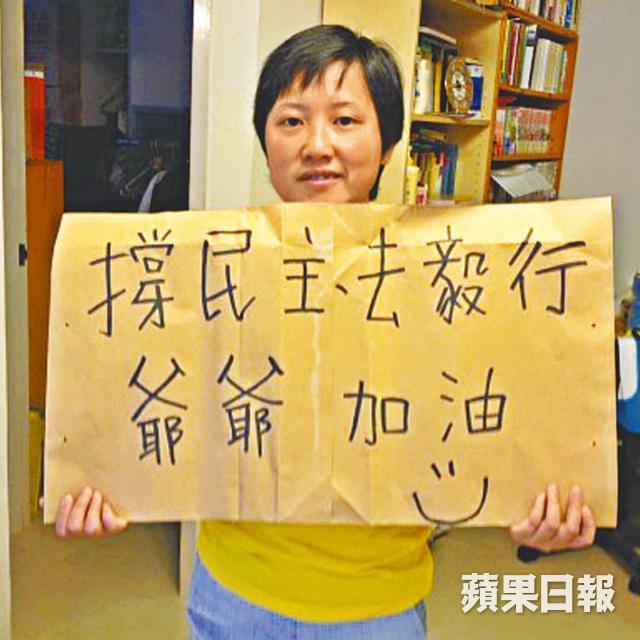 撐民主、去毅行
爺爺 加油
蘋果日報